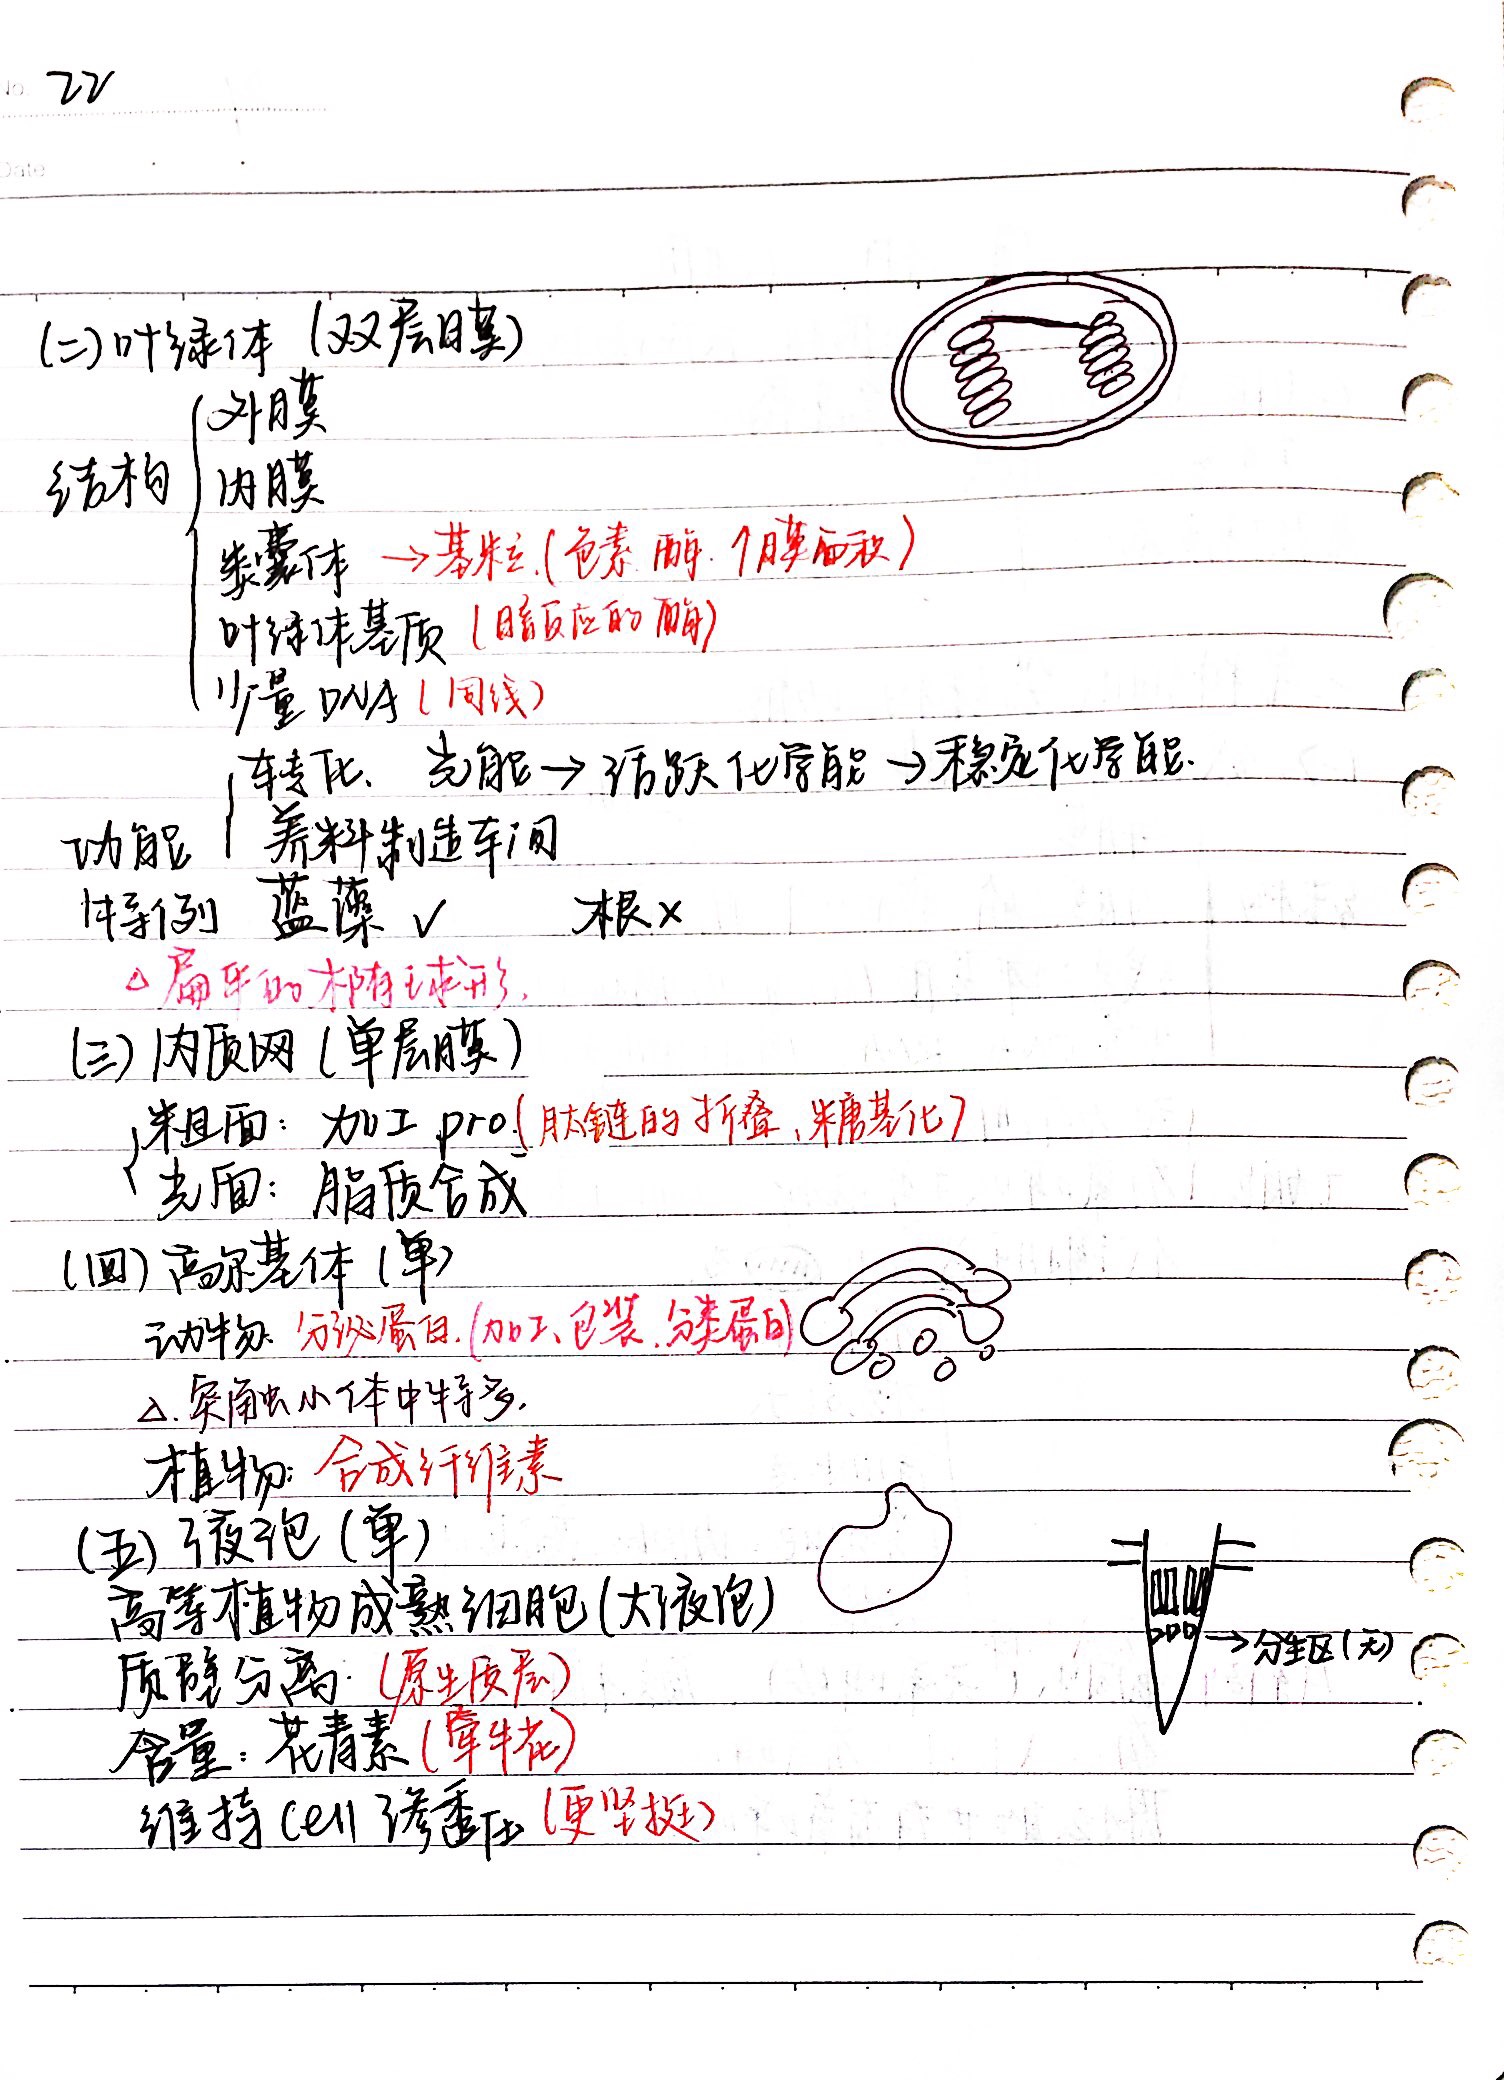 No. 22
Date
(二)叶绿体 (双层膜)
结构
外膜
内膜
类囊体 →基粒.(色素.酶.↑膜面积)
叶绿体基质 (暗反应的酶)
少量DNA (同线)
功能
转化. 光能→活跃化学能→稳定化学能.
养料制造车间
特例 蓝藻✓ 根×
△扁平的椭球形.
(三)内质网(单层膜)
粗面: 加工pro.(肽链的折叠、糖基化)
光面: 脂质合成
(四)高尔基体(单)
动物: 分泌蛋白.(加工、包装.分类蛋白)
△.突触小体中特多.
植物: 合成纤维素
(五)液泡(单)
高等植物成熟细胞(大液泡)
→分生区(无)
质壁分离.(原生质层)
含量: 花青素(牵牛花)
维持cell渗透压(更坚挺)